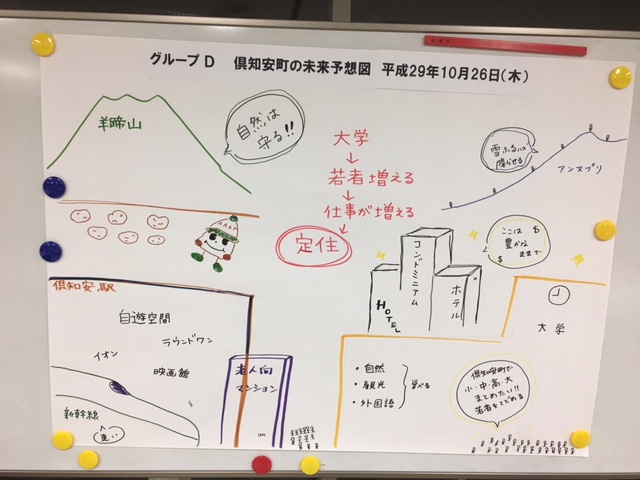 グループD 倶知安町の未来予想図 平成29年10月26日(木)
羊蹄山
自然は
守る!!
大学
↓
若者増える
↓
仕事が増える
↓
定住
降らせる
アンヌプリ
ここは
豊かな
ままで
$
$
コンドミニアム
ホテル
HOTEL
大学
倶知安駅
自遊空間
ラウンドワン
イオン
映画館
新幹線
速い
老人向
マンション
・自然
・観光
・外国語
学べる
倶知安町で
小・中・高・大
まとめたい!!
若者をとどめる